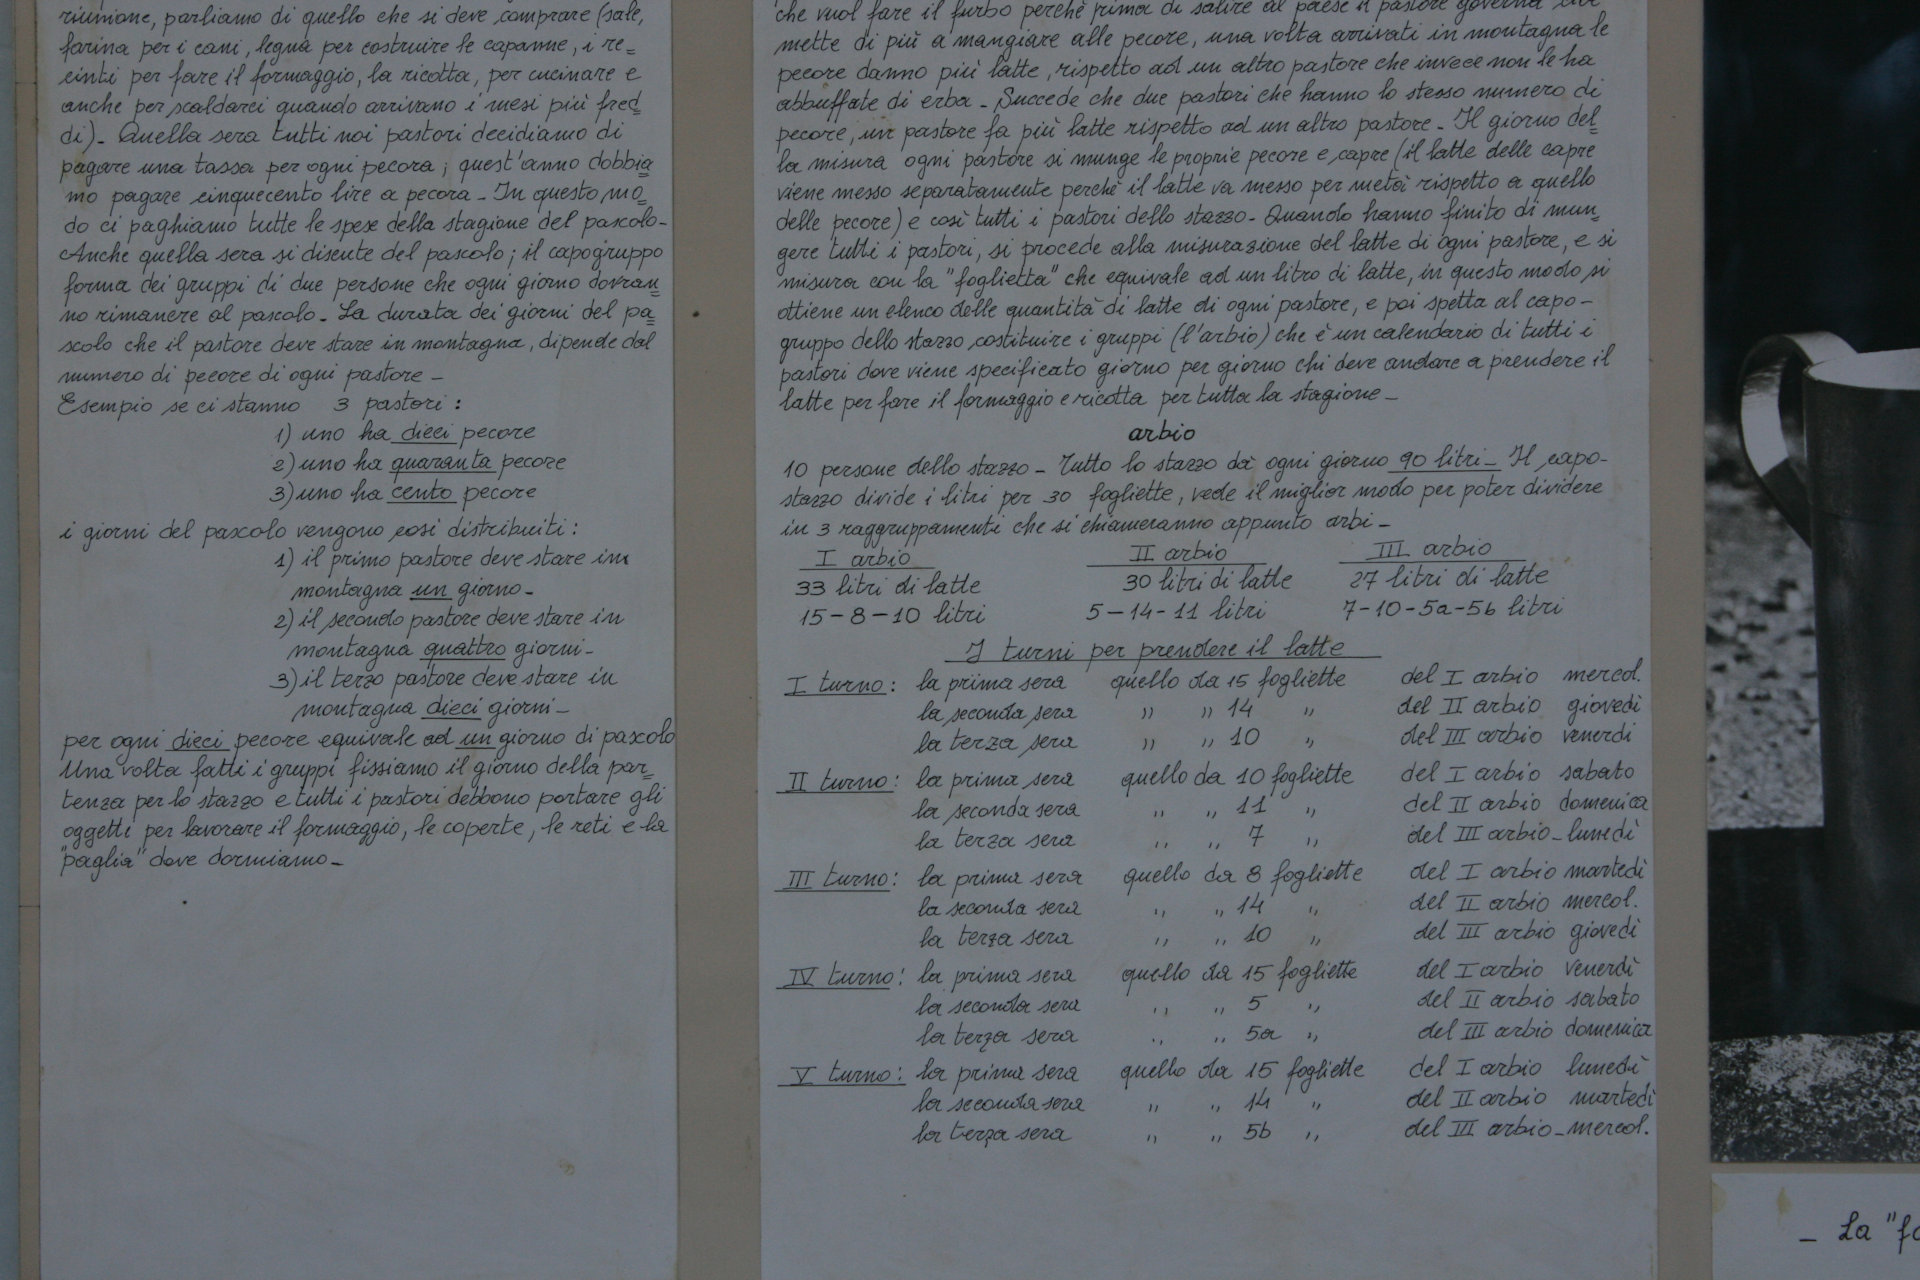 riunione, parliamo di quello che si deve comprare (sale,
farina per i cani, legna per costruire le capanne, i re=
cinti per fare il formaggio, la ricotta, per cucinare e
anche per scaldarci quando arrivano i mesi più fred=
di)- Quella sera tutti noi pastori decidiamo di
pagare una tassa per ogni pecora; quest'anno dobbia=
mo pagare cinquecento lire a pecora - In questo mo=
do ci paghiamo tutte le spese della stagione del pascolo-
Anche quella sera si discute del pascolo; il capogruppo
forma dei gruppi di due persone che ogni giorno dovran=
no rimanere al pascolo- La durata dei giorni del pa=
scolo che il pastore deve stare in montagna, dipende dal
numero di pecore di ogni pastore-
Esempio se ci stanno 3 pastori:
1) uno ha dieci pecore
2) uno ha quaranta pecore
3) uno ha cento pecore
i giorni del pascolo vengono così distribuiti:
1) il primo pastore deve stare in
montagna un giorno-
2) il secondo pastore deve stare in
montagna quattro giorni-
3) il terzo pastore deve stare in
montagna dieci giorni-
per ogni dieci pecore equivale ad un giorno di pascolo
Una volta fatti i gruppi fissiamo il giorno della par=
tenza per lo stazzo e tutti i pastori debbono portare gli
oggetti per lavorare il formaggio, le coperte, le reti e la
"paglia" dove dormiamo-
che vuol fare il furbo perchè prima di salire al paese il pastore governa
mette di più a mangiare alle pecore, una volta arrivati in montagna le
pecore danno più latte, rispetto ad un altro pastore che invece non le ha
abbuffate di erba - Succede che due pastori che hanno lo stesso numero di
pecore, un pastore fa più latte rispetto ad un altro pastore - Il giorno del=
la misura ogni pastore si munge le proprie pecore e capre (il latte delle capre
viene messo separatamente perchè il latte va messo per metà rispetto a quello
delle pecore) e così tutti i pastori dello stazzo- Quando hanno finito di mun=
gere tutti i pastori, si procede alla misurazione del latte di ogni pastore, e si
misura con la "foglietta" che equivale ad un litro di latte, in questo modo si
ottiene un elenco delle quantità di latte di ogni pastore, e poi spetta al capo-
gruppo dello stazzo costituire i gruppi (l'arbio) che è un calendario di tutti i
pastori dove viene specificato giorno per giorno chi deve andare a prendere il
latte per fare il formaggio e ricotta per tutta la stagione-
arbio
10 persone dello stazzo - Tutto lo stazzo dà ogni giorno 90 litri- Il capo-
stazzo divide i litri per 30 fogliette, vede il miglior modo per poter dividere
in 3 raggruppamenti che si chiameranno appunto arbi-
I arbio II arbio III arbio
33 litri di latte 30 litri di latte 27 litri di latte
15-8-10 litri 5-14-11 litri 7-10-5a-5b litri
I turni per prendere il latte
I turno: la prima sera quello da 15 fogliette del I arbio mercol.
la seconda sera " " 14 " del II arbio giovedì
la terza sera " " 10 " del III arbio venerdì
II turno: la prima sera quello da 10 fogliette del I arbio sabato
la seconda sera " " 11 " del II arbio domenica
la terza sera " " 7 " del III arbio-lunedì
III turno: la prima sera quello da 8 fogliette del I arbio martedì
la seconda sera " " 14 " del II arbio mercol.
la terza sera " " 10 " del III arbio giovedì
IV turno: la prima sera quello da 15 fogliette del I arbio venerdì
la seconda sera " " 5 " del II arbio sabato
la terza sera " " 5a " del III arbio domenica
V turno: la prima sera quello da 15 fogliette del I arbio lunedì
la seconda sera " " 14 " del II arbio martedì
la terza sera " " 5b " del III arbio-mercol.
- La "fo